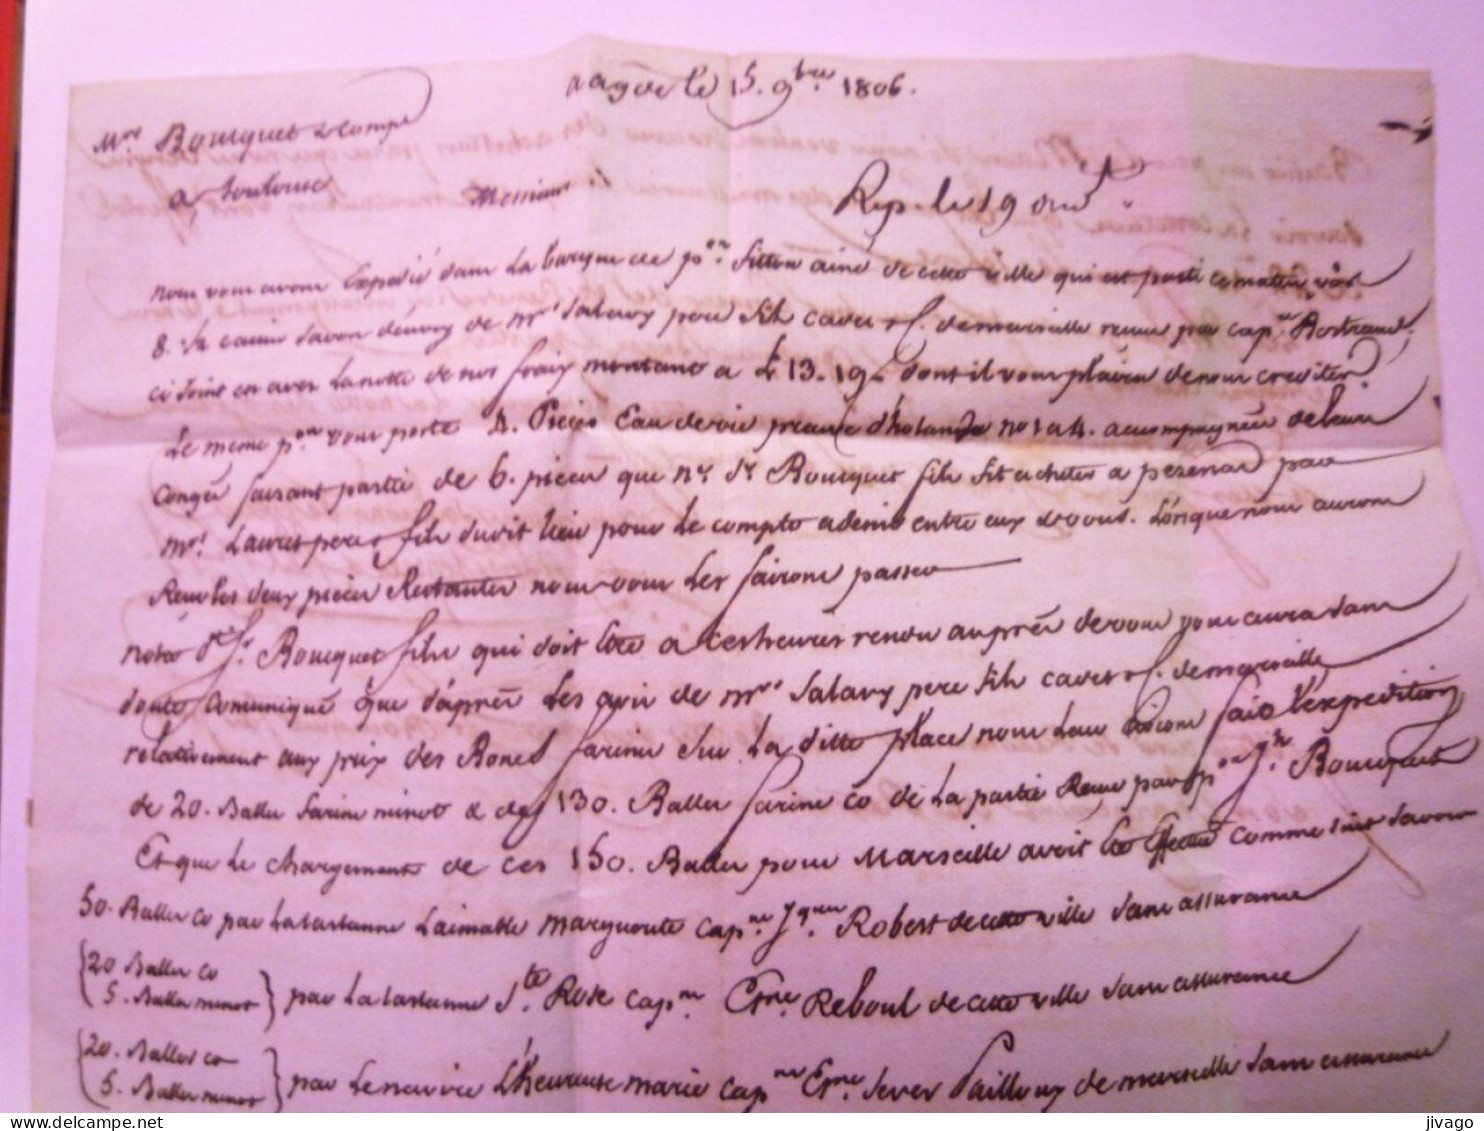 a agde le 15. 9bre. 1806.
Mrs. Bousquet & Compe
a toulouse
Messieurs
Rep. le 19 dud
nous vous avons Expedié dans la barque de pon. fitton ainé de cette ville qui est parti ce matin
8. caisses savon d'envoy de Mrs Salavy pere fils cadet & C. de marseille remis par capne. Bertrand
ci joint en avez la notte de nos fraix montant a 13.19 dont il vous plaira de nous crediter
Le meme pon vous porte 4. Pieces Eau de vie preuve d'holande no 1 a 4. accompagnées de leurs
congés faisant partie de 6. pieces que Sr Bousquet fils fit acheter a pezenas par
Mrs. Lauret pere & fils dudit lieu pour le compte a demi entre eux & vous. Lorsque nous aurons
Reçu les deux pieces Restantes nous vous les fairons passer
notre Sr Jh. Bousquet fils qui doit être a ces heures rendu auprès de vous vous aura sans
doute comuniqué que d'après les avis de Mrs Salavy pere fils cadet & C. de marseille
relativement aux prix des Bones farines sur La ditte place nous Leur avions fait l'expedition
de 20. Balles farine minot & de 130. Balles farine co de la partie Remise par pon Jh. Bousquet
Et que le chargement de ces 150. Balles pour Marseille avoit été Effectué comme suit savoir
50. Balles co par la tartanne L'aimable marguerite capne. Jques. Robert de cette ville sans assurance
20 Balles co
5. Balles minot
par La tartanne Ste. Rose capne. Etne. Reboul de cette ville sans assurance
20. Balles co
5. Balles minot
par Le navire L'heureuse marie capne Etne. sever Pailloux de marseille sans assurance
jivago